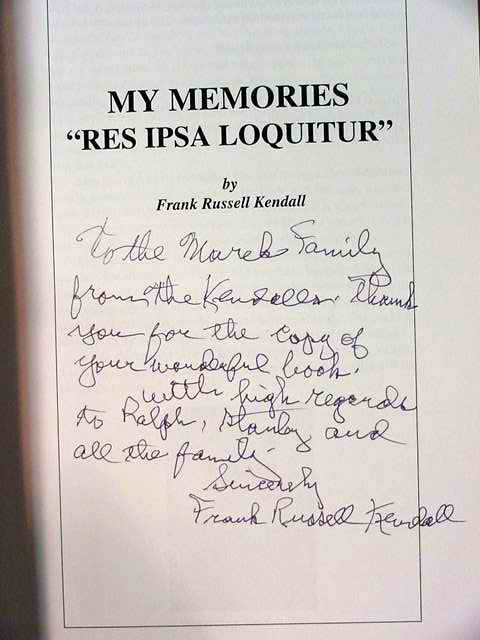 MY MEMORIES
“RES IPSA LOQUITUR”
by
Frank Russell Kendall
To the Marek Family
from the Kendalls. Thank
you for the copy of
your wonderful book.
with high regards
to Ralph, Stanley and
all the family.
Sincerely
Frank Russell Kendall